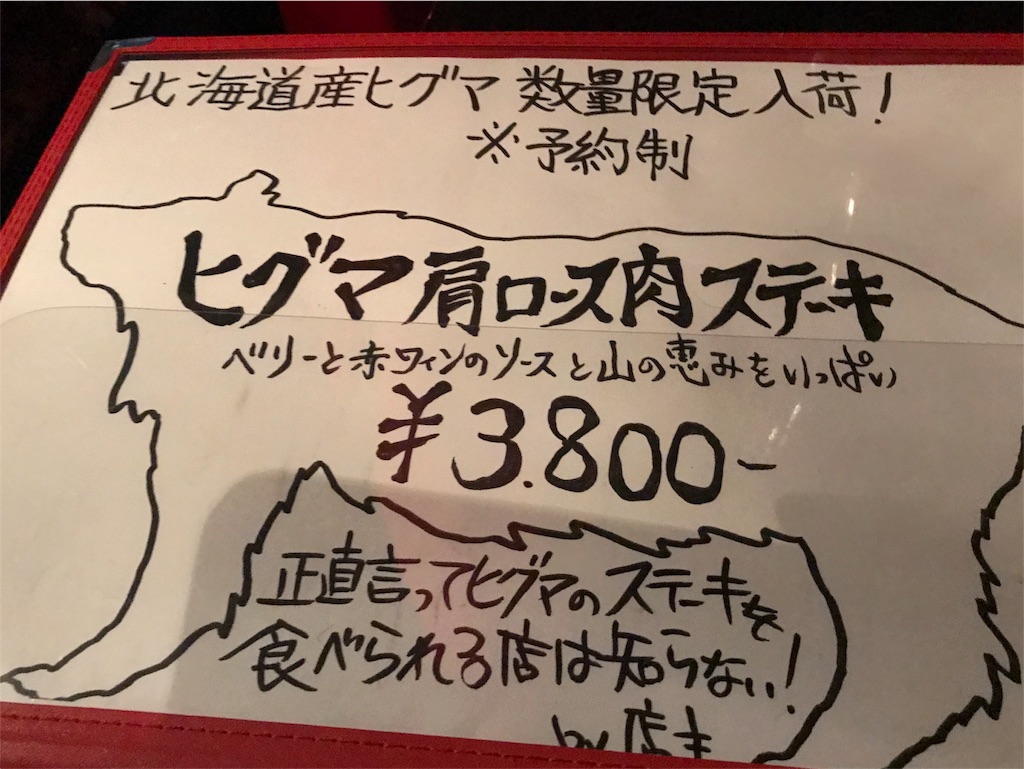 北海道産ヒグマ 数量限定入荷!
※予約制
ヒグマ肩ロース肉ステーキ
ベリーと赤ワインのソースと山の恵みをいっぱい
¥3.800-
正直言ってヒグマのステーキを
食べられる店は知らない!
by 店主